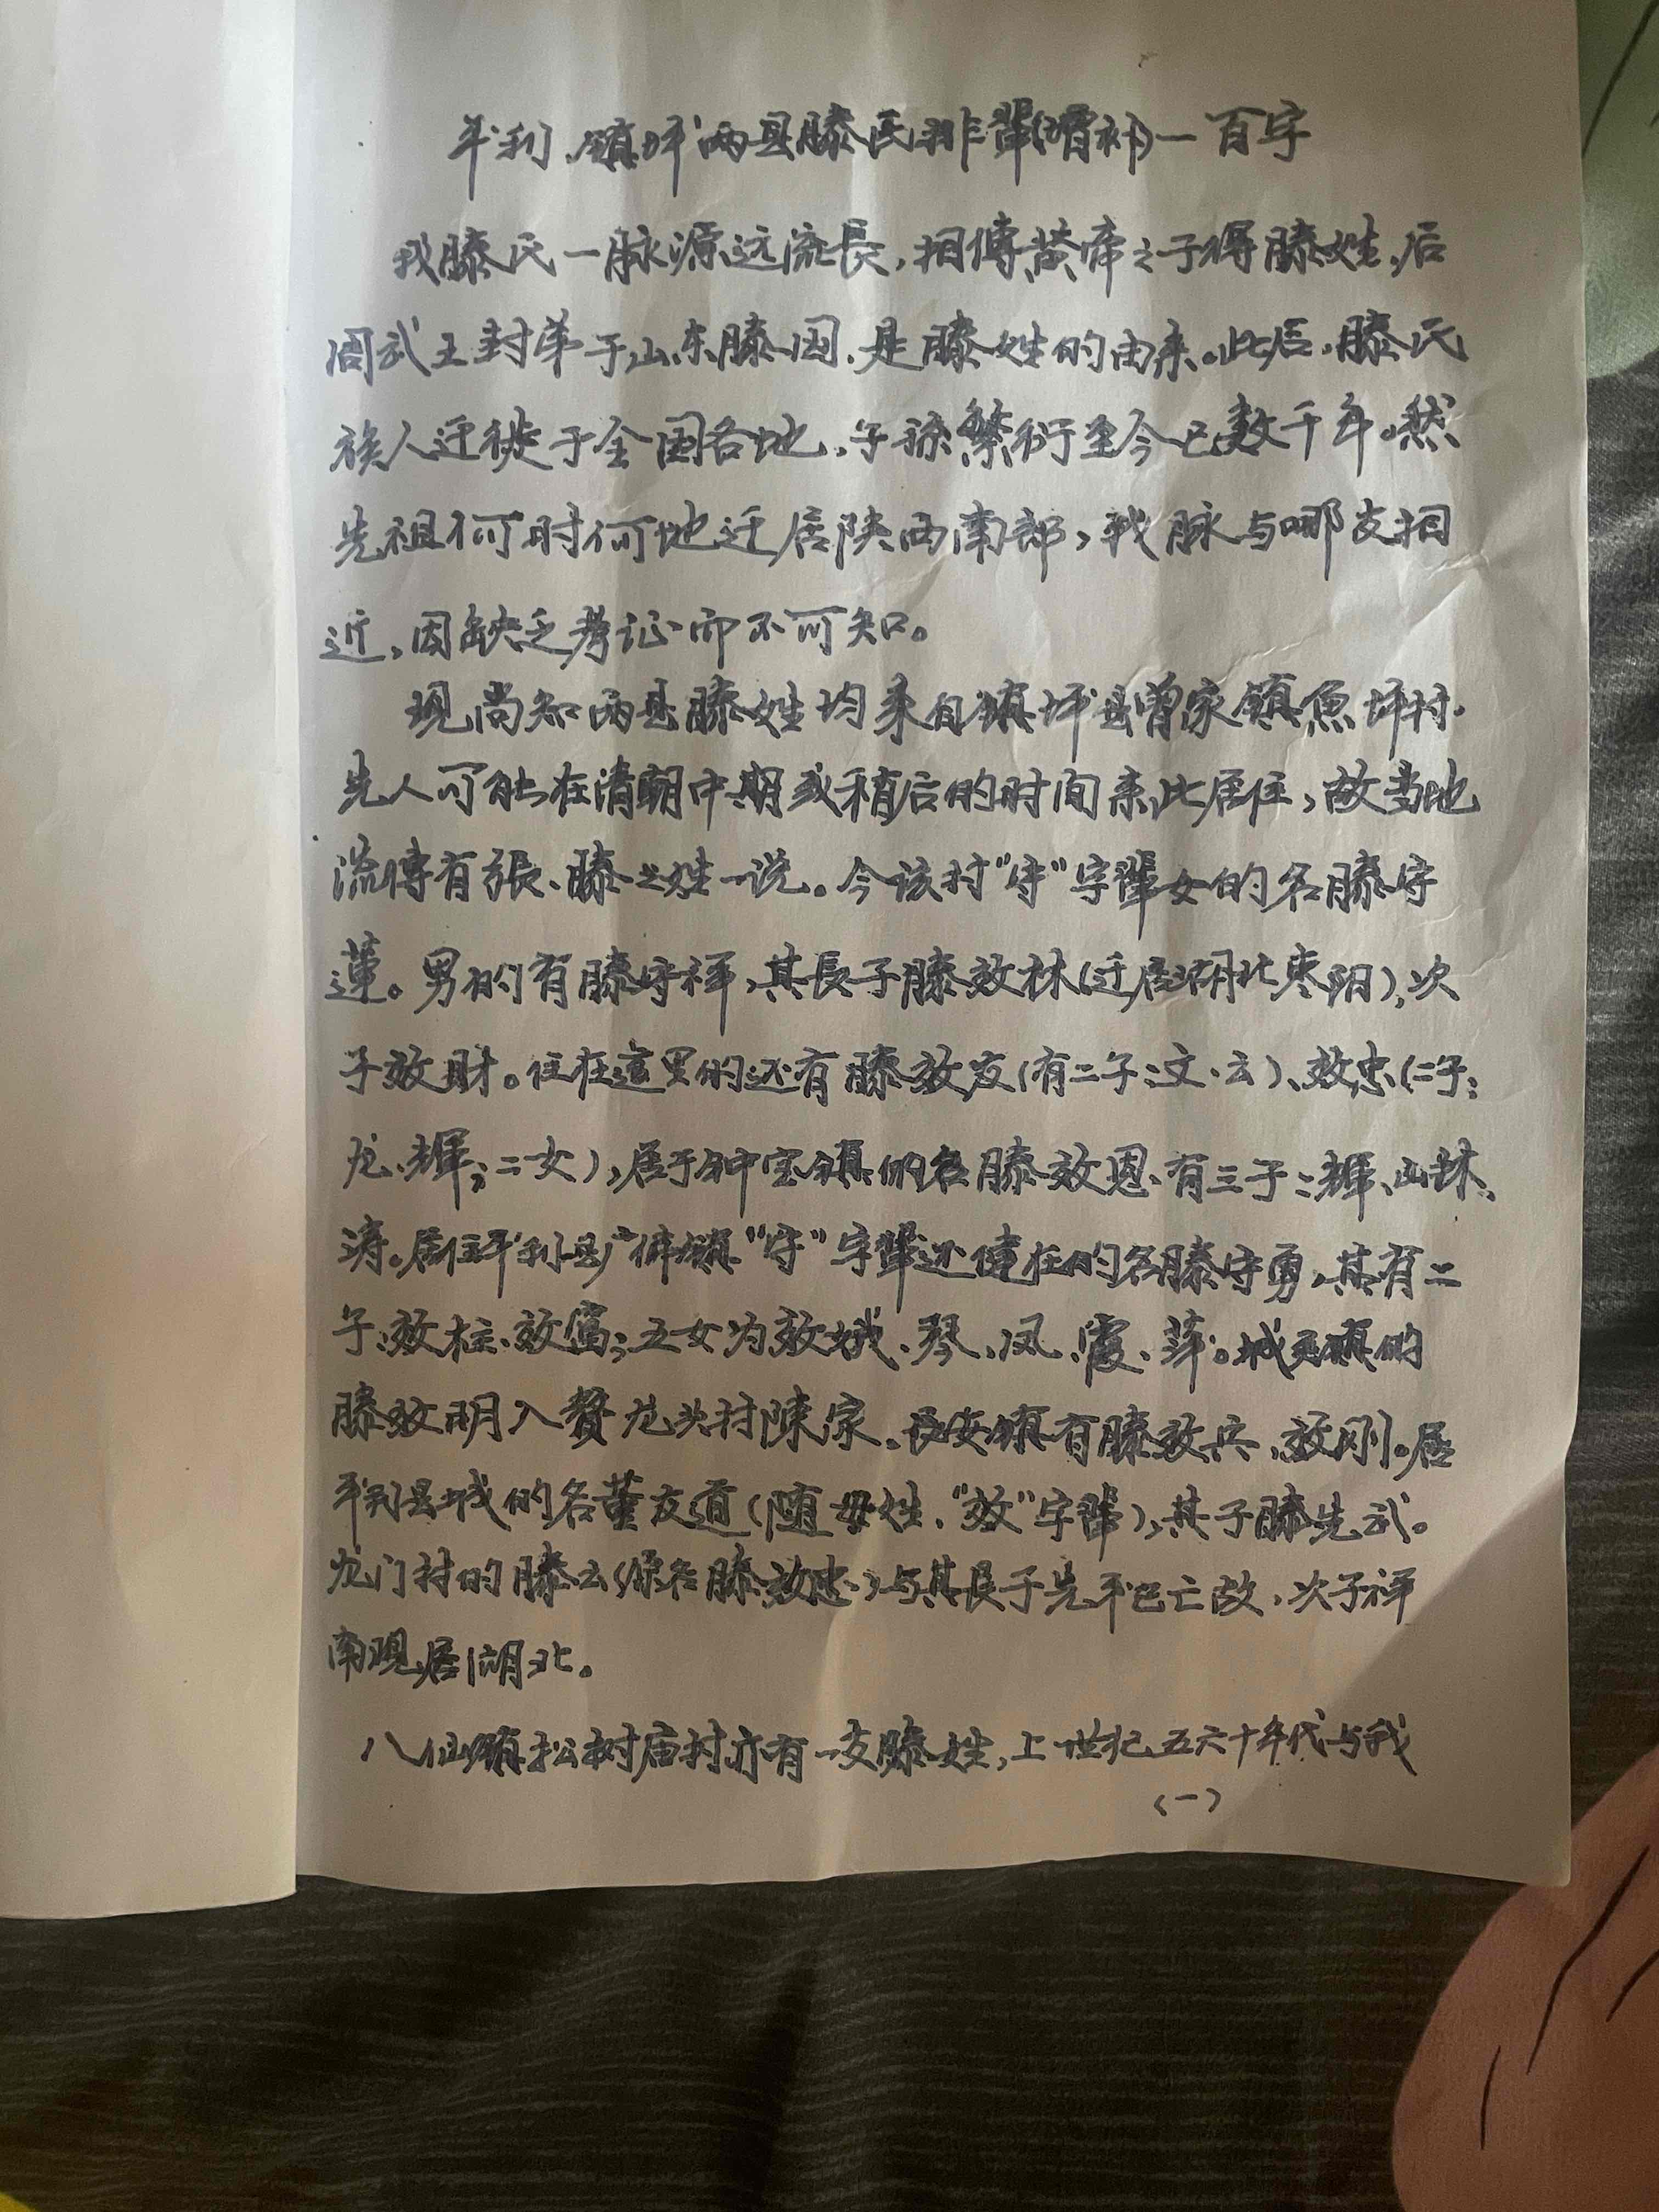 平利、镇坪两县滕氏排辈(增补)一百字
我滕氏一脉源远流長,相傳黄帝之子得滕姓,后
周武王封弟于山东滕国,是滕姓的由来。此后,滕氏
族人迁徙于全国各地,子孫繁衍至今已数千年。然
先祖何时何地迁居陕西南部,我脉与哪支相
近,因缺乏考证而不可知。
现尚知两县滕姓均来自镇坪县曾家镇魚坪村.
先人可能在清朝中期或稍后的时间来此居住,故当地
流傳有張、滕之姓一说。今该村“守”字輩女的名滕守
蓮。男的有滕守祥,其長子滕效林(迁居湖北枣阳),次
子效財。住在這里的还有滕效友(有二子:文、云)、效忠(二子:
龙、輝;二女),居于钟宝镇的名滕效恩、有三子:輝、山林、
涛。居住平利县广佛镇“守”字輩还健在的名滕守勇,其有二
子:效柱、效富;五女为效娥、琴、凤、霞、萍。城关镇的
滕效明入贅龙头村陳家。長安镇有滕效兵、效刚。居
平利县城的名董友道(随母姓,“效”字輩),其子滕先武。
龙门村的滕云(原名滕效忠)与其長子先平已亡故,次子祥
南现居湖北。
八仙镇松树庙村亦有一支滕姓,上世纪五六十年代与我
(一)